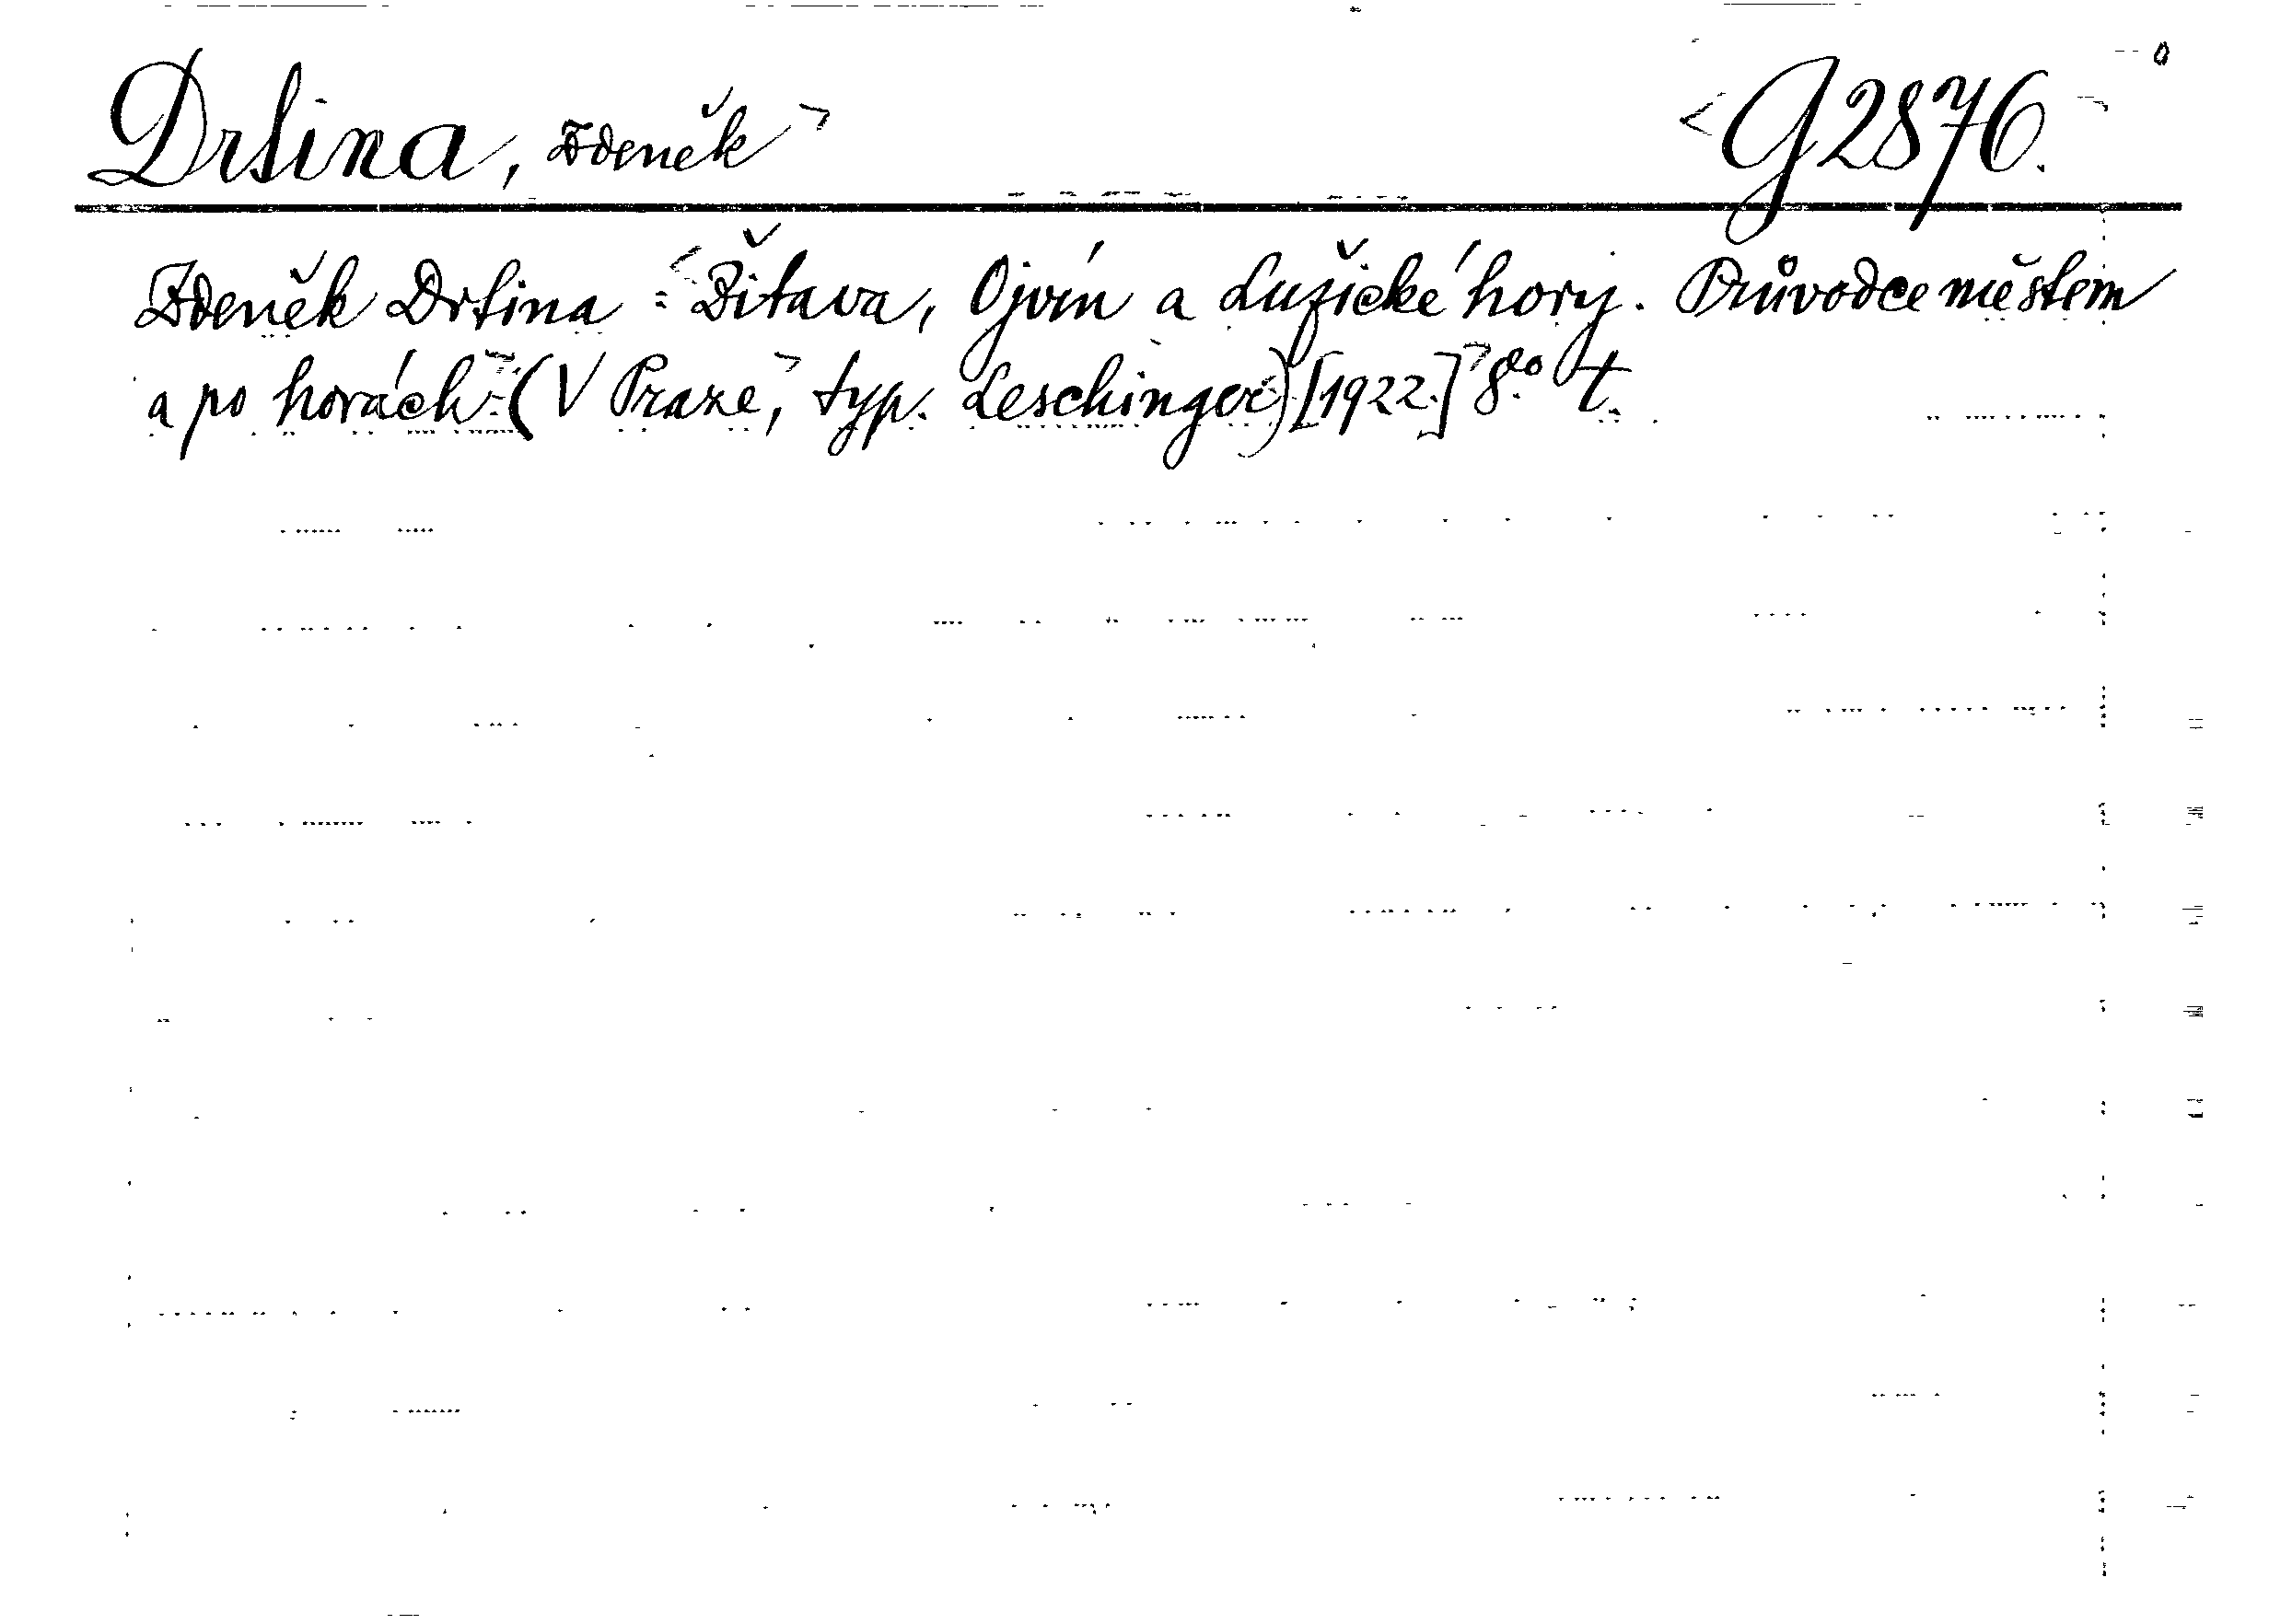 Drtina, Zdeněk G 2876.
Zdeněk Drtina: Žitava, Ojvín a Lužické hory. Průvodce městem
a po horách. (V Praze, typ. Leschinger) [1922.] 8.° t.